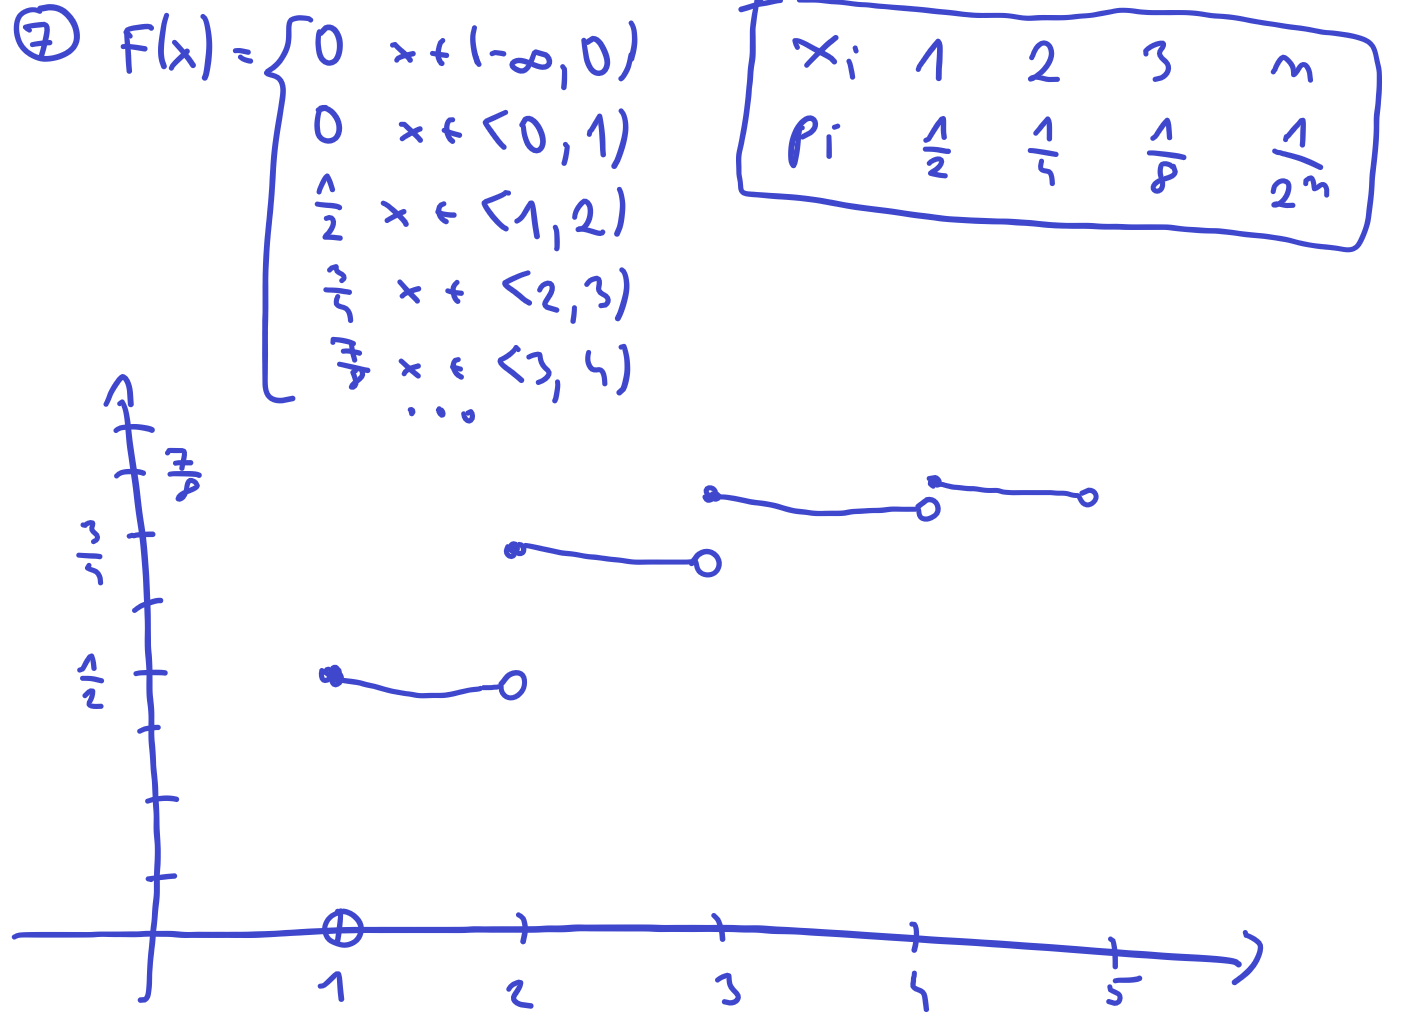 7 F(x) = { 0 x ∈ (-∞, 0)
0 x ∈ <0, 1)
1/2 x ∈ <1, 2)
3/4 x ∈ <2, 3)
7/8 x ∈ <3, 4)
...
xi 1 2 3 n
pi 1/2 1/4 1/8 1/2^n
7/8
3/4
1/2
1 2 3 4 5